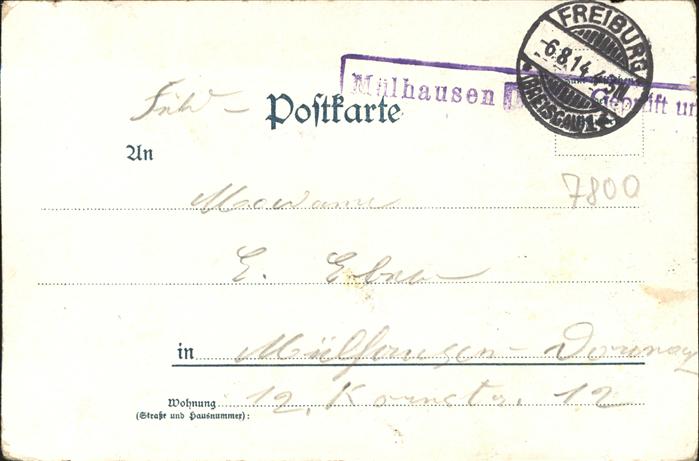 FREIBURG
-6.8.14. 
(BREISGAU)
Mülhausen
Geprüft un
Postkarte
An
7800
Madame
E.
in Mülhausen - Dornach
Wohnung 12, Kornstr. 12
(Straße und Hausnummer):